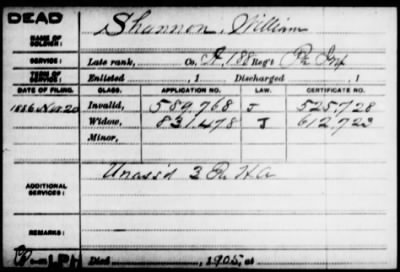 DEAD
NAME OF SOLDIER: Shannon, William
SERVICE: Late rank, Co. A, 188 Reg't Pa Inf
TERM OF SERVICE: Enlisted , 1 Discharged , 1
DATE OF FILING. CLASS. APPLICATION NO. LAW. CERTIFICATE NO.
1886 Nov. 20 Invalid, 589.768 J 525.728
Widow, 831.478 J 612.723
Minor,
ADDITIONAL SERVICES: Unass'd 3 Pa. H.A.
REMARKS:
Died , 1905, at